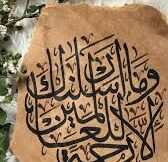 وما أرسلناك
إلا رحمة
للعالمين